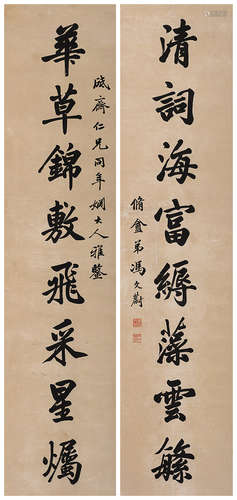 清詞海富縟藻雲緐
脩盦弟馮文蔚
盛齋仁兄同年姻大人雅鑒
華草錦敷飛采星爥